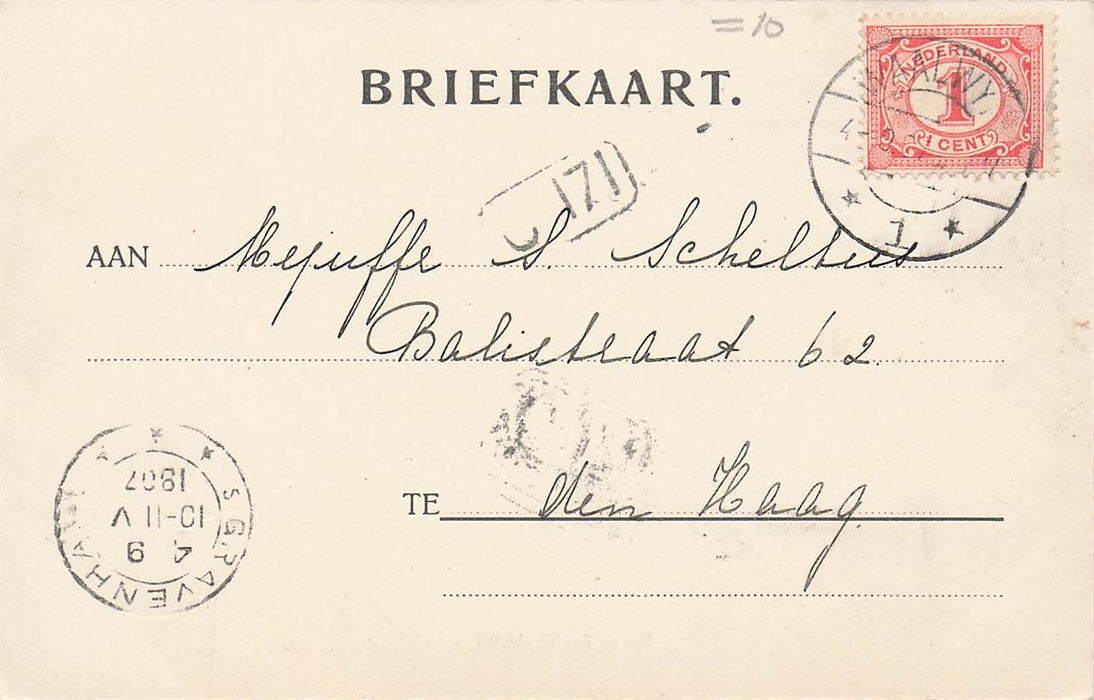 = 10
BRIEFKAART.
NEDERLAND
1
1 CENT
1
171
AAN Mejuffe S. Scheltus
Balistraat 62.
TE den Haag.
S GRAVENHAGE
4 9
10-11 V
1907